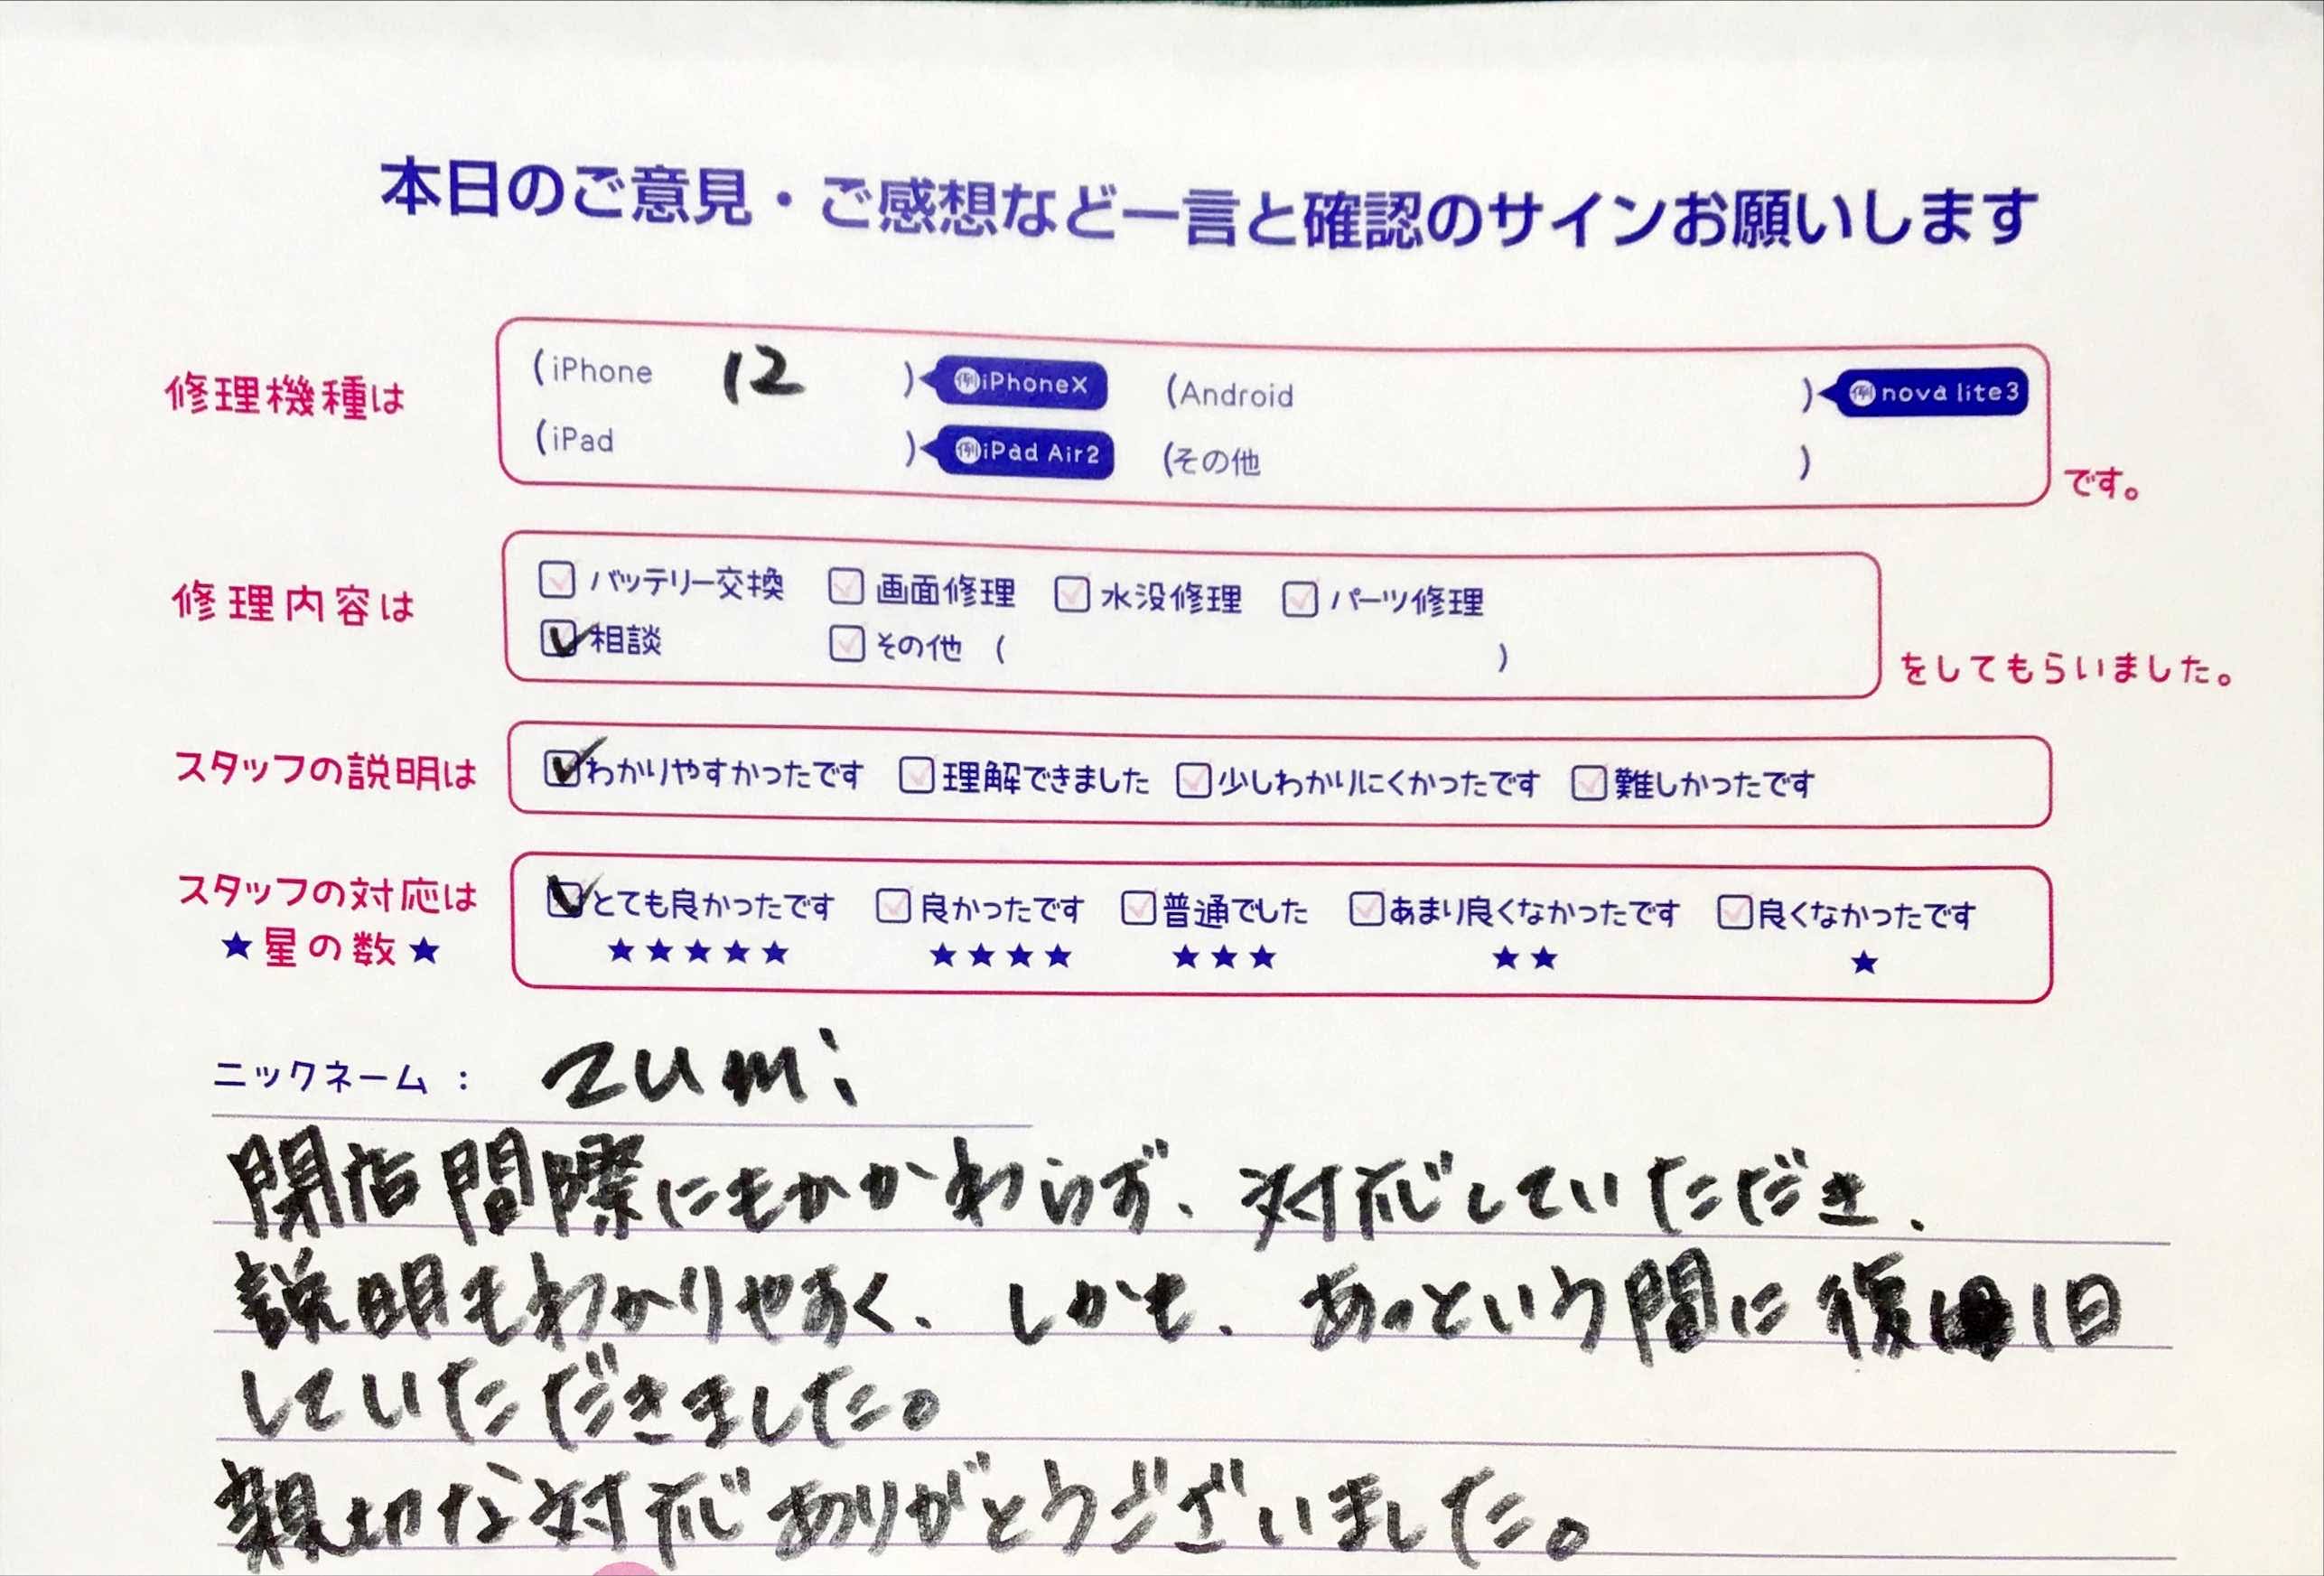 本日のご意見・ご感想など一言と確認のサインお願いします
修理機種は
(iPhone 12 ) 例iPhoneX (Android ) 例nova lite3
(iPad ) 例iPad Air2 (その他 )
です。
修理内容は
バッテリー交換 画面修理 水没修理 パーツ修理
相談 その他 ( )
をしてもらいました。
スタッフの説明は
わかりやすかったです 理解できました 少しわかりにくかったです 難しかったです
スタッフの対応は
★星の数★
とても良かったです 良かったです 普通でした あまり良くなかったです 良くなかったです
★★★★★ ★★★★ ★★★ ★★ ★
ニックネーム: zumi
閉店間際にもかかわらず、対応していただき、
説明もわかりやすく、しかも、あっという間に復旧
していただきました。
親切な対応ありがとうございました。